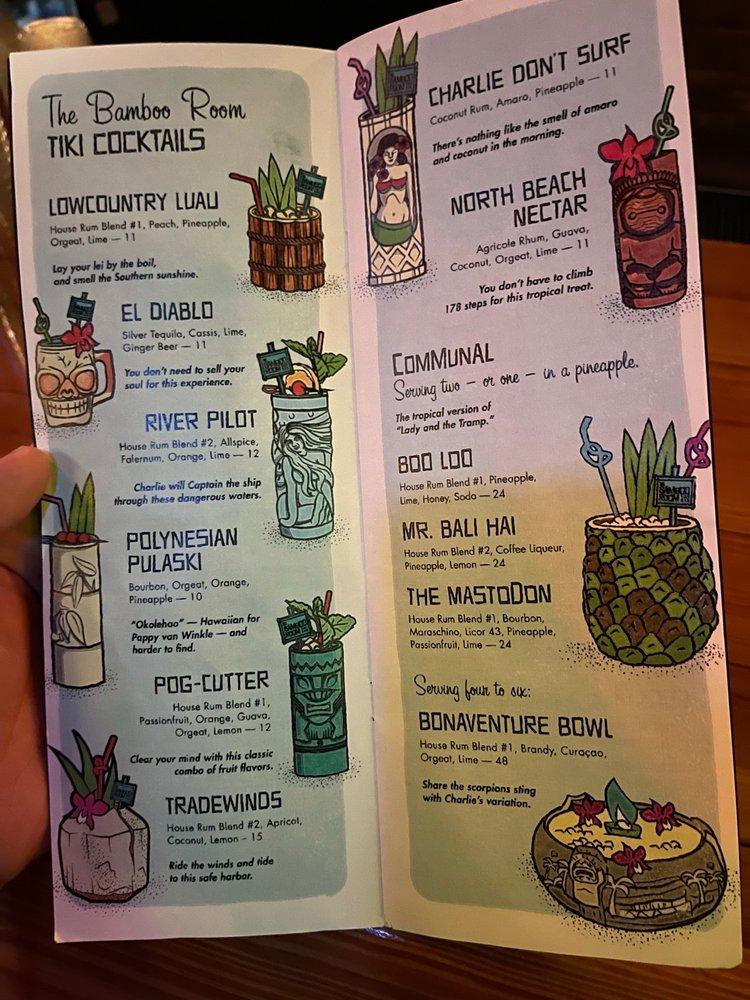 The Bamboo Room
TIKI COCKTAILS
LOWCOUNTRY LUAU
House Rum Blend #1, Peach, Pineapple,
Orgeat, Lime — 11
Lay your lei by the boil,
and smell the Southern sunshine.
EL DIABLO
Silver Tequila, Cassis, Lime,
Ginger Beer — 11
You don't need to sell your
soul for this experience.
RIVER PILOT
House Rum Blend #2, Allspice,
Falernum, Orange, Lime — 12
Charlie will Captain the ship
through these dangerous waters.
POLYNESIAN
PULASKI
Bourbon, Orgeat, Orange,
Pineapple — 10
"Okolehao" — Hawaiian for
Pappy van Winkle — and
harder to find.
POG-CUTTER
House Rum Blend #1,
Passionfruit, Orange, Guava,
Orgeat, Lemon — 12
Clear your mind with this classic
combo of fruit flavors.
TRADEWINDS
House Rum Blend #2, Apricot,
Coconut, Lemon - 15
Ride the winds and tide
to this safe harbor.
CHARLIE DON'T SURF
Coconut Rum, Amaro, Pineapple — 11
There's nothing like the smell of amaro
and coconut in the morning.
NORTH BEACH
NECTAR
Agricole Rhum, Guava,
Coconut, Orgeat, Lime — 11
You don't have to climb
178 steps for this tropical treat.
COMMUNAL
Serving two – or one – in a pineapple.
The tropical version of
"Lady and the Tramp."
BOO LOO
House Rum Blend #1, Pineapple,
Lime, Honey, Soda — 24
MR. BALI HAI
House Rum Blend #2, Coffee Liqueur,
Pineapple, Lemon — 24
THE MASTODON
House Rum Blend #1, Bourbon,
Maraschino, Licor 43, Pineapple,
Passionfruit, Lime — 24
Serving four to six:
BONAVENTURE BOWL
House Rum Blend #1, Brandy, Curaçao,
Orgeat, Lime — 48
Share the scorpions sting
with Charlie's variation.
THE
BAMBOO
ROOM